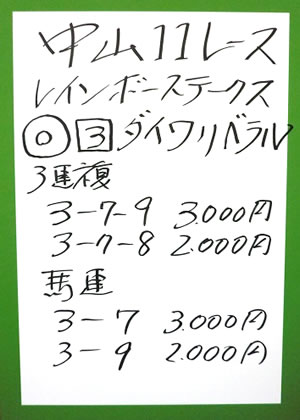 中山11レース
レインボーステークス
◎ 3 ダイワリベラル
3連複
3-7-9 3.000円
3-7-8 2.000円
馬連
3-7 3.000円
3-9 2.000円